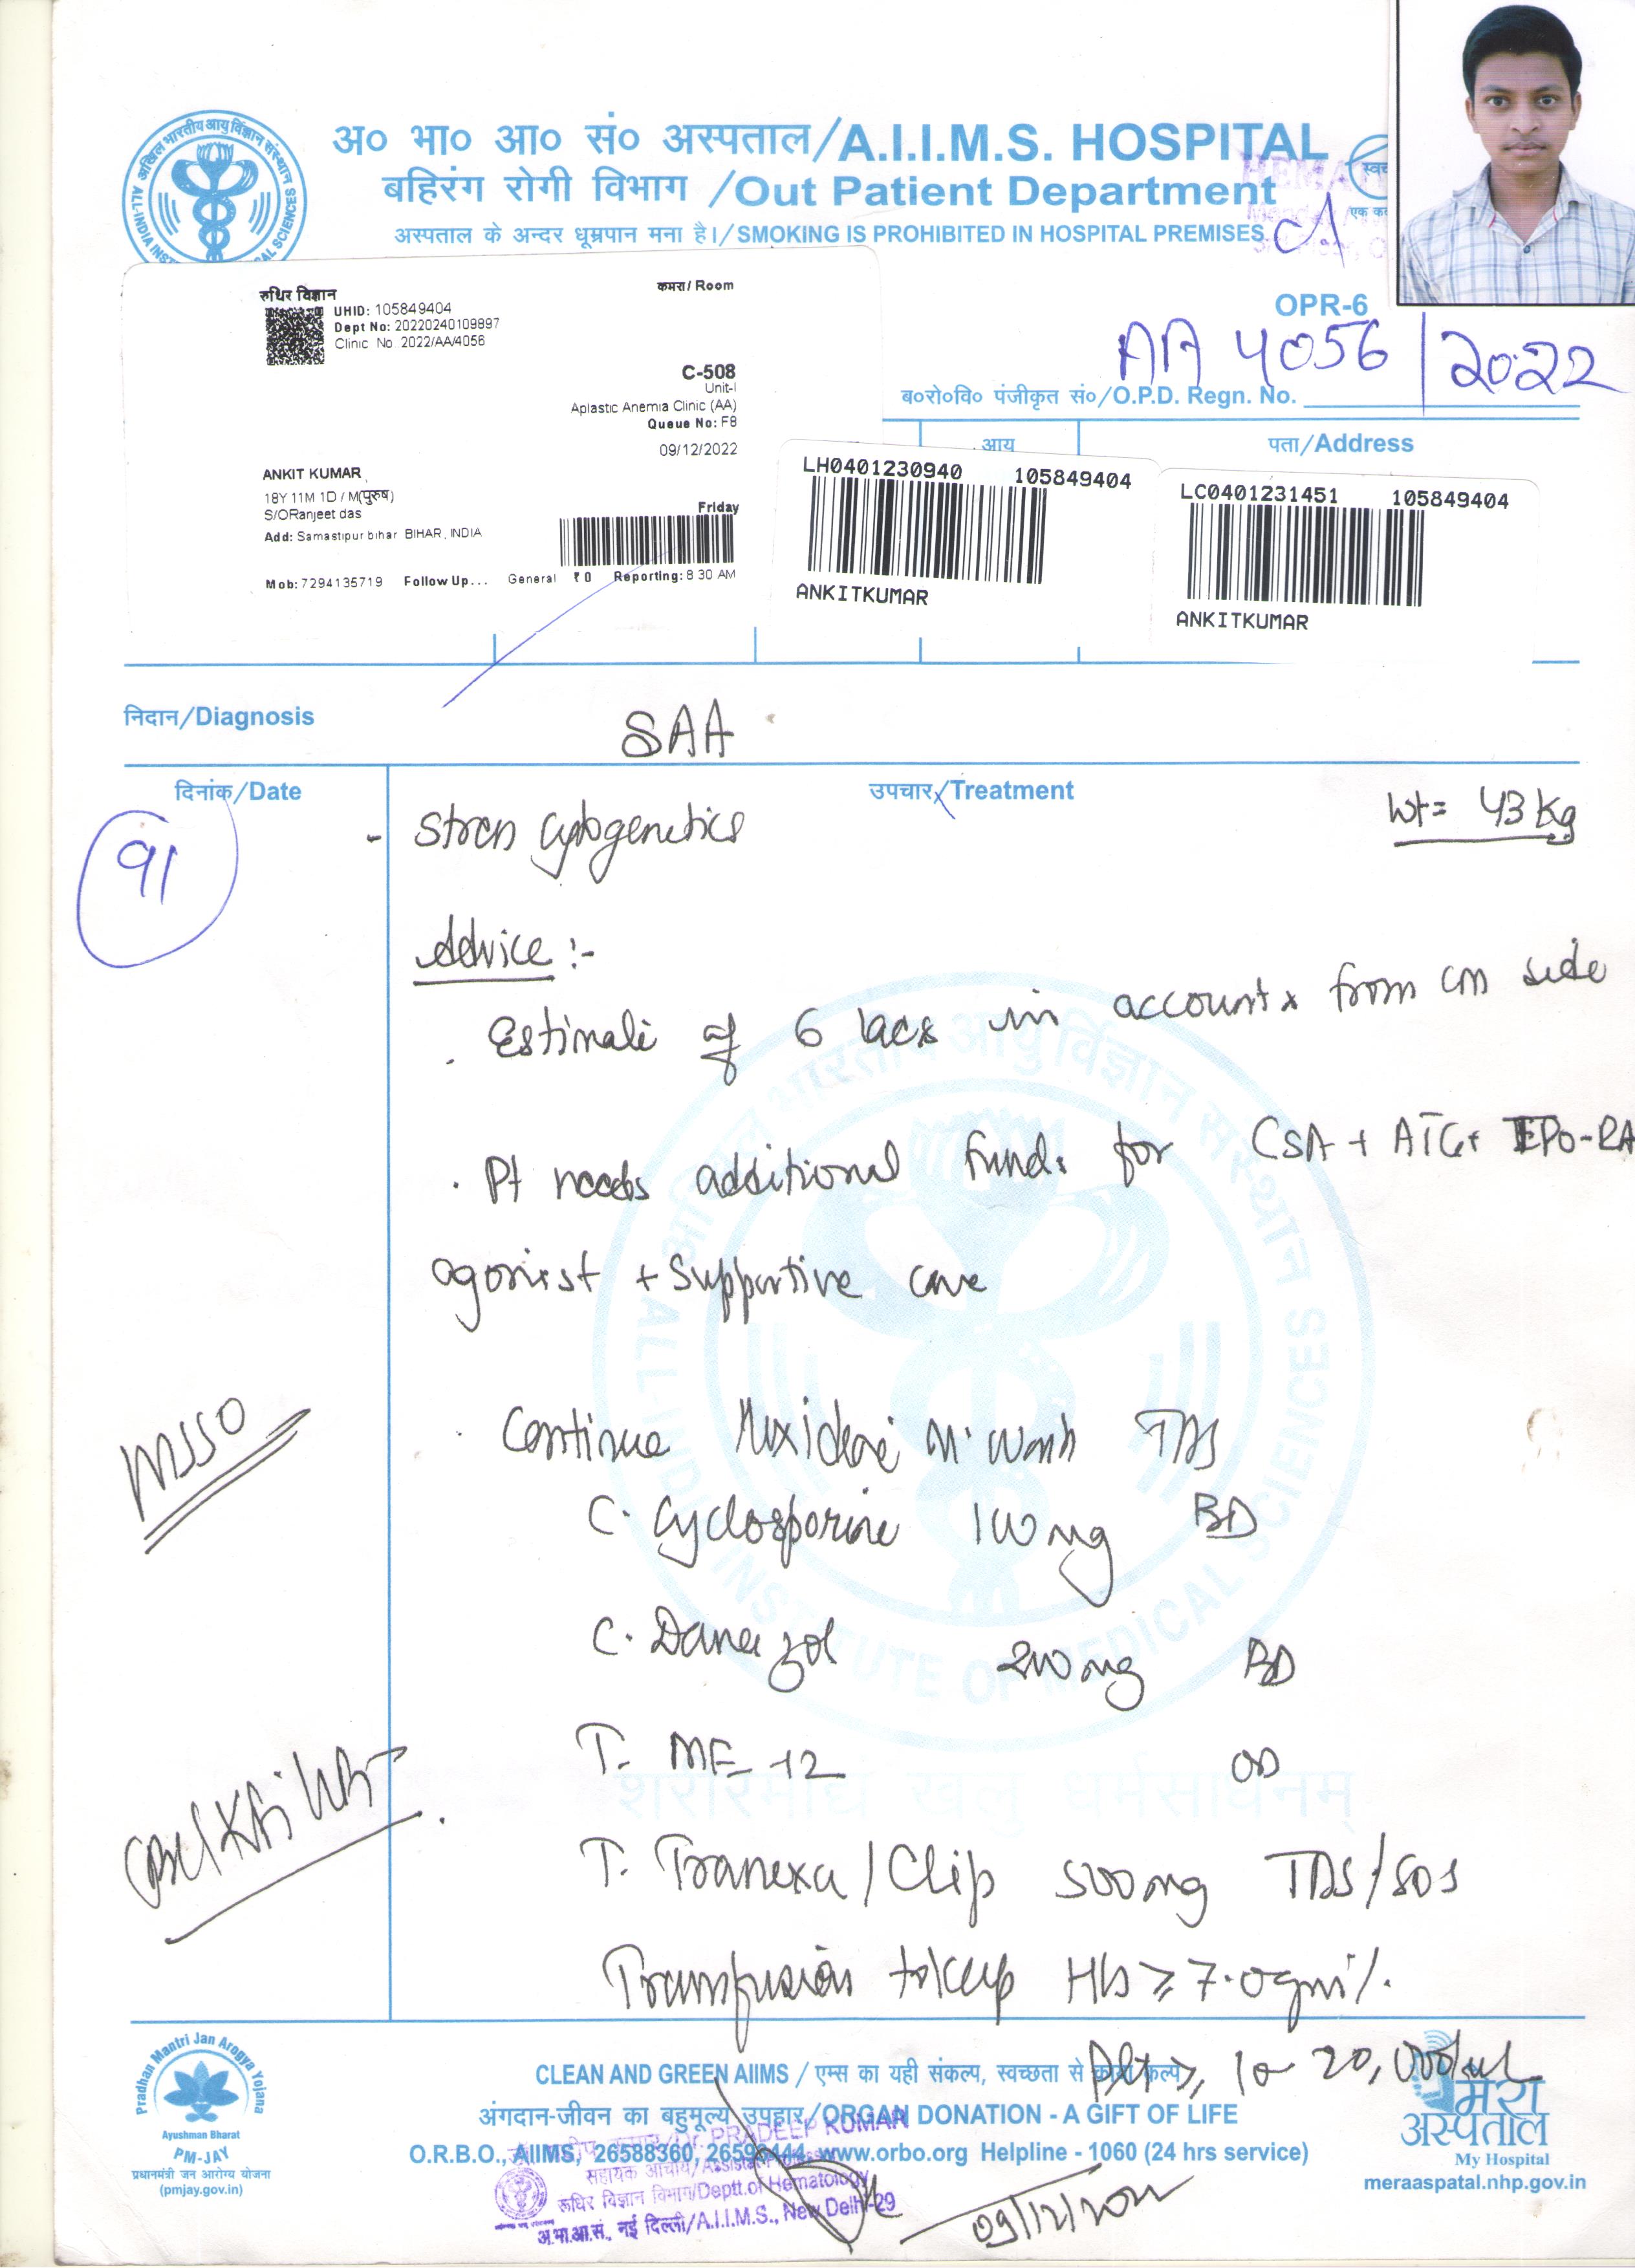 अ० भा० आ० सं० अस्पताल/A.I.I.M.S. HOSPITAL
बहिरंग रोगी विभाग /Out Patient Department
अस्पताल के अन्दर धूम्रपान मना है।/SMOKING IS PROHIBITED IN HOSPITAL PREMISES
रुधिर विज्ञान
कमरा/ Room
UHID: 105849404
Dept No: 20220240109897
Clinic No 2022/AA/4056
C-508
Unit-I
Aplastic Anemia Clinic (AA)
Queue No: F8
09/12/2022
ANKIT KUMAR
18Y 11M 1D / M(पुरुष)
S/ORanjeet das
Friday
Add: Samastipur bihar BIHAR, INDIA
Mob: 7294135719 Follow Up... General ₹ 0 Reporting: 8 30 AM
OPR-6
AA 4056/2022
ब०रो०वि० पंजीकृत सं०/O.P.D. Regn. No.
आय
पता/Address
LH0401230940 105849404
ANKITKUMAR
LC0401231451 105849404
ANKITKUMAR
निदान/Diagnosis
SAA
दिनांक/Date
उपचार/Treatment
91
Wt= 43 kg
- cytogenetics
Advice :-
. Estimate of 6 lacs in account from side
. Pt needs additional funds for CSA + ATG+ EPO-RA
agonist + Supportive care
. Continue TDS
C. Cyclosporine 100mg BD
C. Danazol 200mg BD
T. MF-12 OD
T. Tranexa/Clip 500mg TDS/SOS
Transfusion to keep Hb ≥ 7.0gm%.
Plt ≥ 10-20,000/ul
MSSO
Pradhan Mantri Jan Arogya Yojana
Ayushman Bharat
PM-JAY
प्रधानमंत्री जन आरोग्य योजना
(pmjay.gov.in)
CLEAN AND GREEN AIIMS / एम्स का यही संकल्प, स्वच्छता से काया कल्प
अंगदान-जीवन का बहुमूल्य उपहार/ORGAN DONATION - A GIFT OF LIFE
O.R.B.O., AIIMS, 26588360, 26593444, www.orbo.org Helpline - 1060 (24 hrs service)
Dr. PRADEEP KUMAR
सहायक आचार्य/Assistant
रूधिर विज्ञान विभाग/Deptt.of Hematology
अ.भा.आ.सं., नई दिल्ली/A.I.I.M.S., New Delhi-29
मेरा
अस्पताल
My Hospital
meraaspatal.nhp.gov.in
शरीरमाद्यं खलु धर्मसाधनम्
ALL INDIA INSTITUTE OF MEDICAL SCIENCES